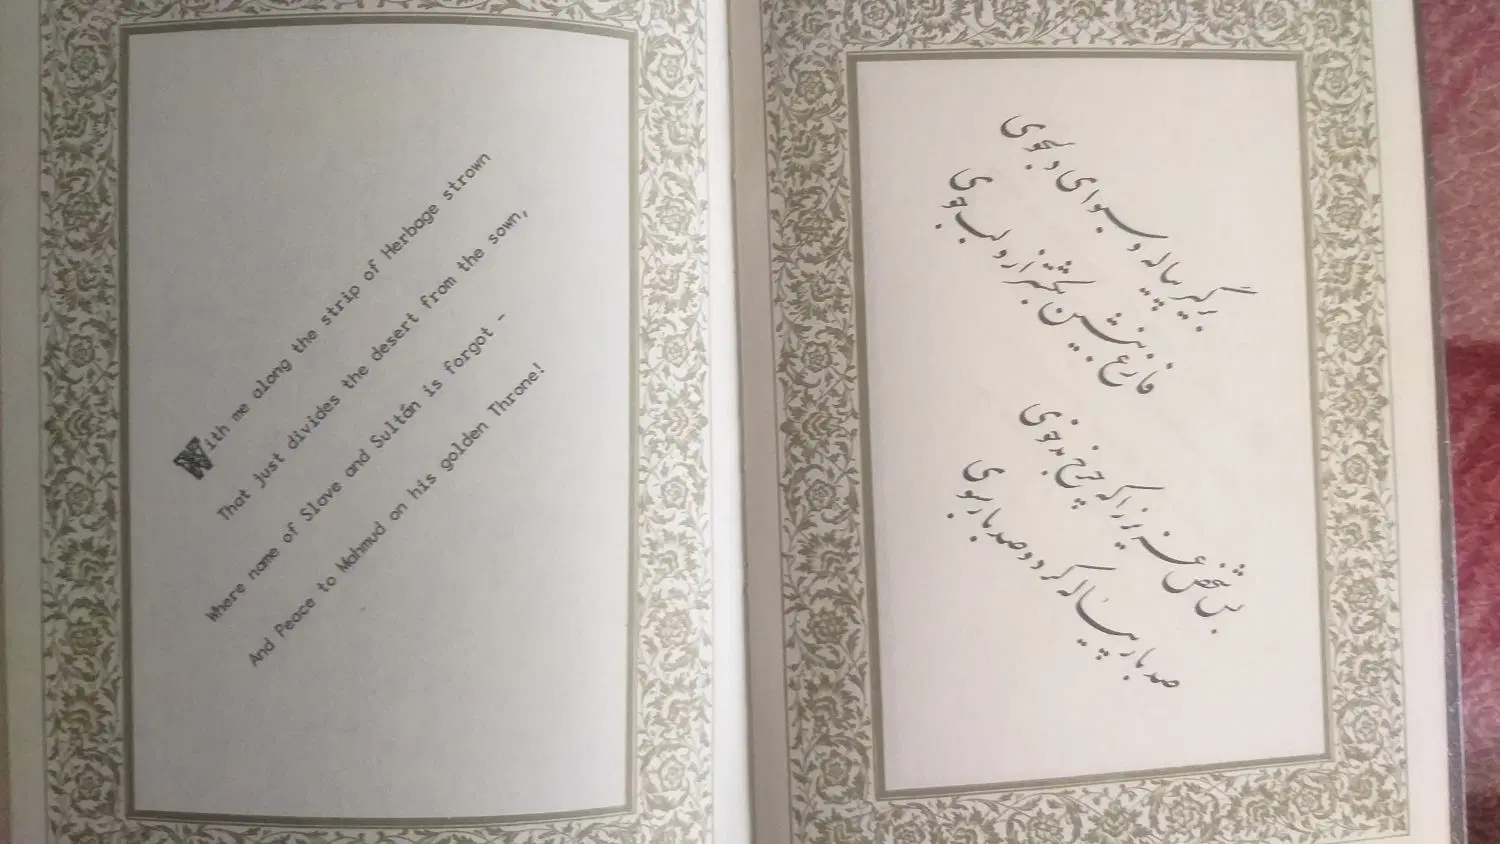 With me along the strip of Herbage strown
That just divides the desert from the sown,
Where name of Slave and Sultán is forgot -
And Peace to Mahmud on his golden Throne!
برگیر پیاله و سبو ای دلجوی
فارغ بنشین بکشتزار و لب جوی
بس شخص عزیز را که چرخ بدخوی
صد بار پیاله کرد و صد بار سبوی